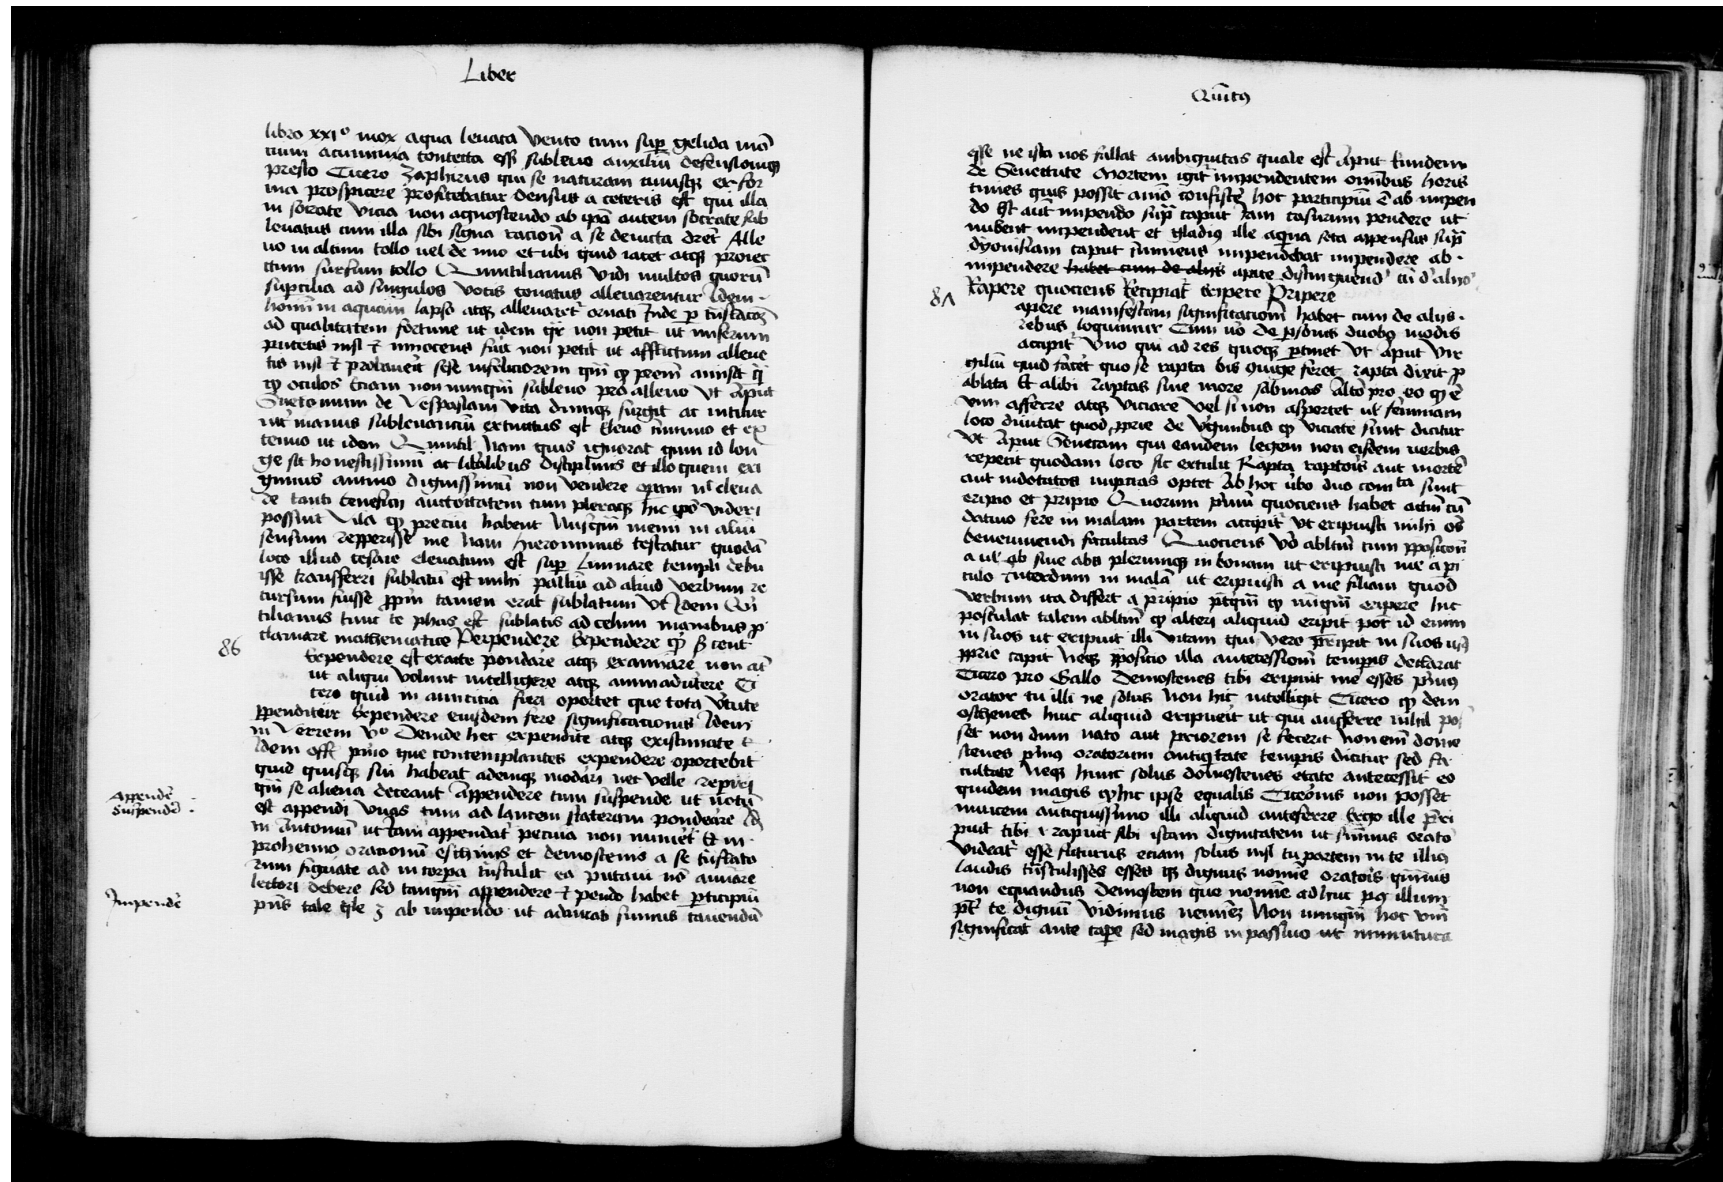 Liber
libro xxi° mox aqua levata vento cum sup gelida mō
tium acumina contecta esset sublevo auxiliū defensionemq
presto Cicero Zaphirus qui se naturam cuiusq ex for
ma prospicere profitebatur densus a ceteris est qui illa
in socrate vicia non agnoscendo ab ipō autem socrate sub
levatus cum illa sibi signa racion̄ a se devicta dret Alle
vo in altum tollo vel de imo et ubi quid iacet atq proiec
tum sursum tollo Quintilianus vidi multos quorū
supcilia ad singulos vocis conatus allevarentur Idem
homī in aquam lapso atq allevaret ornati Inde p trīslacōꝫ
ad qualitatem fortune ut idem qr non petit ut miserum
putetis nisi et innocens fuit non petit ut afflictum alleve
tis nisi et probaverit sese infeliciorem qm̄ qꝫ prem̄ amisit q̄
qꝫ oculos Etiam non nunqm̄ sublevo pro allevo Ut Aput
Suetonium de Vespasiani vita dumq surgit ac nititur
int manus sublevanciū extinctus est Elevo minuo et ex
tenuo ut idem Quintil Nam quis ignorat quin id lon
ge sit honestissimū ac libalibus disciplinis et illo quem exi
gimus animo dignissimū non vendere operam nec eleva
re tanti beneficii auctoritatem cum pleraq hic ipō videri
possint vilia qꝫ preciū habent Nusqm̄ memi in aliū
sensum repperisse me Nam hieronimus testatur quodā
loco illud cesare elevatum est sup liminare templi debu
isse transferri sublatū est mihi palliū ad aliud verbum re
cursum fuisse ppm̄ tamen erat sublatum Ut Idem Qui
tilianus tunc te phas est sublatis ad celum manibus p
clamare mathematice Perpendere Expendere qꝫ cent
86
Expendere est exacte pondare atq examinare non at
ut aliqui volunt intelligere atq animadvtere Ci
cero quid in amicitia fieri oportet que tota vtute
ppenditur Expendere eiusdem fere significationis Idem
in Verrem V° Deinde hec expendite atq existimate
Idem offi primo que contemplantes expendere oportebit
quid quisq sui habeat ademq modari nec velle repiri
qm̄ se aliena deceant Appendere tum suspende ut notū
est appendi uvas tum ad lancem stateram pondeare Id
in Antoniū ut iam appendat pecuia non numet Et in
Appendē
Suspendē
prohemio orationū eschinis et demostenis a se trīslato
rum figuate ad in corpa trīstulit ea putavi nō anūare
lectori debere sed tanqm̄ appendere et pendo habet pticipiū
pns tale qle ꝫ ab impendo ut advitab sumus cavendū
Impendē
Quītꝰ
esse ne ista nos fallat ambiguitas quale est Aput Eundem
de Senectute Mortem igit impendentem omībus horis
times quis possit aīmo consistere hoc participiū ē ab impen
do Est aut impendo supra caput iam casurum pendere ut
nubent impendent et gladius ille aequa seta appensus sup
dyonisiam caput sumens impendebat impendere ab
impendere habet cum de aliis apate distinguend cū d'aliīo
Rapere quociens Recipiat Eripere Pripere
87
apere manifestam significationem habet cum de aliis
rebus loquimur Cum vō de psonis duobꝰ modis
accipit Uno qui ad res quoq ptinet Ut Aput Vir
giliū quid facet quo se rapta bis giuige feret rapta dixit p
ablata Et alibi Raptas sine more sabinas Altō pro eo qꝫ ē
vim afferre atq viciare vel si non asportet ut feminam
loco dimitat quod pprie de vginibus qꝫ viciate sunt dicitur
Ut Aput Senecam qui eandem legem non eisdem verbis
repetit quodam loco sic extulit Rapta raptoris aut mortē
aut indotatas nupcias optet Ab hoc verbo duo comta sunt
eripio et pripio Quorum primū quociens habet actm̄ cū
dativo fere in malam partem accipit Ut eripuisti mihi oīs
deveniendi facultas Quociens vō abltm̄ cum ppositoē
a ul ab sive abs plerumq in bonam ut eripuisti me a pi
culo Interdum in malā ut eripuisti a me filiam Quod
verbum ita differt a pripio ptqm̄ qꝫ nunqm̄ eripere hic
postulat talem abltm̄ qꝫ alteri aliquid eripit pot id enim
in suos ut eripuit illi vitam qui vero pripit in suos usꝰ
pprie capit Neq ppositio illa antecessionem tempis declarat
Cicero pro Gallo Demostenes tibi eripuit me esses primꝰ
orator tu illi ne solus Non hic intelligit Cicero qꝫ dem
osthenes huic aliquid eripueit ut qui aufferre nihil po
set non dum nato aut priorem se fecerit Non em̄ demo
stenes primꝰ oratorum antiqtate tempis dicitur sed fa
cultate Neq hunc solus demostenes etate antecessit eo
quidem magis qꝫ hic ipse equalis Ciceronis non posset
invicem antiquissimo illi aliquid anteferre Ergo ille pri
puit tibi et rapuit sibi istam dignitatem ut summus orato
videat esse futurus etiam solus nisi tu partem in te illius
laudis trīstulisses esses qꝫ dignus nomine oratois quamis
non equandus Demostem que nomine adhuc pꝰ illum
ptr te dignū vidimus neminē Non nunqm̄ hoc vm̄
significat ante cape sed magis in passivo ut immutura